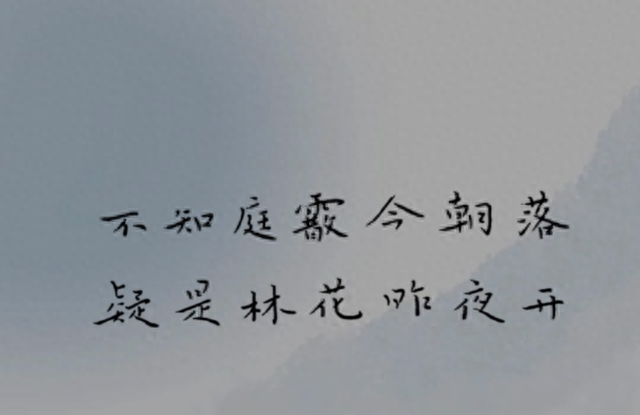 不知庭霰今朝落
疑是林花昨夜开